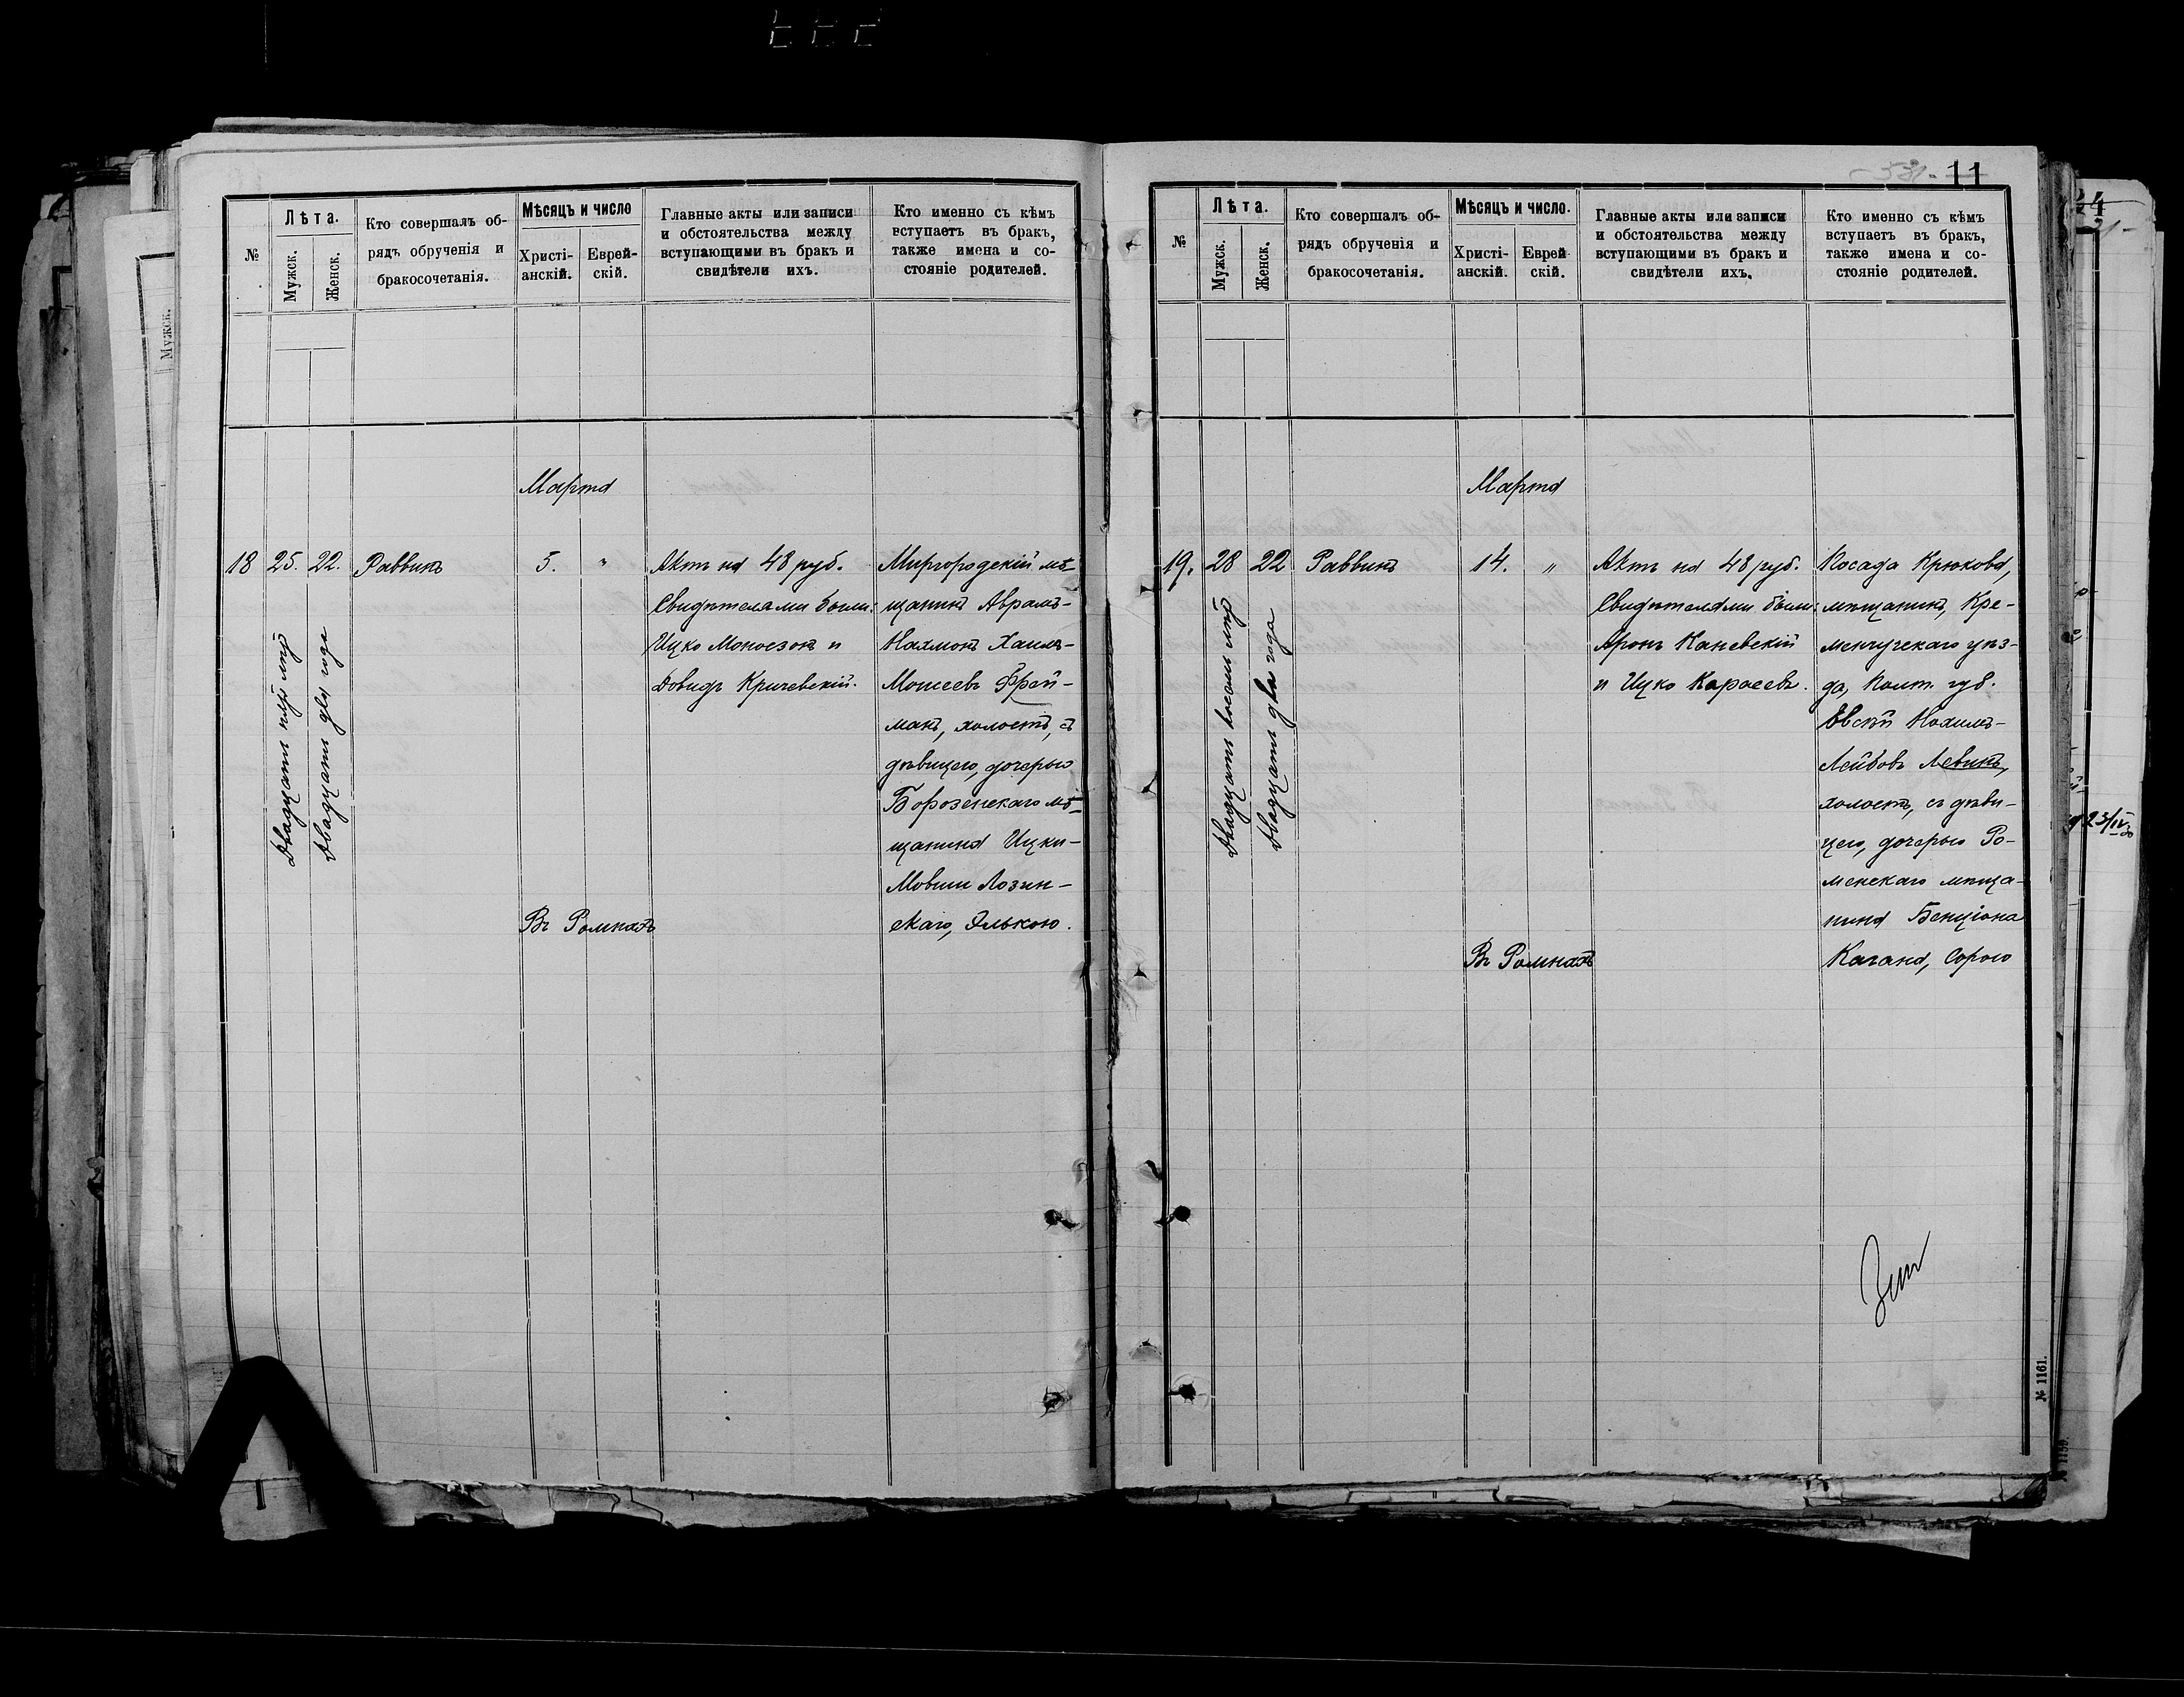 №
Лѣта.
Мужск.
Женск.
Кто совершалъ об-
рядъ обрученія и
бракосочетанія.
Мѣсяцъ и число
Христі-
анскій.
Еврей-
скій.
Главные акты или записи
и обстоятельства между
вступающими въ бракъ и
свидѣтели ихъ.
Кто именно съ кѣмъ
вступаетъ въ бракъ,
также имена и со-
стояніе родителей.
Марта
18
25.
22.
Двадцать пять лѣтъ
Двадцать два года
Раввинъ
5.
"
Актъ на 48 руб.
Свидѣтелями были:
Ицко Моносзон и
Довидъ Кричевскій.
Миргородскій мѣ-
щанинъ Абрамъ-
Нахманъ Хаимъ-
Моисеевъ Фрей-
манъ, холостъ, съ
дѣвицею, дочерью
Борозенскаго мѣ-
щанина Ицки-
Мовши Лозин-
скаго, Элькою.
Въ Ромнахъ
11
№
Лѣта.
Мужск.
Женск.
Кто совершалъ об-
рядъ обрученія и
бракосочетанія.
Мѣсяцъ и число.
Христі-
анскій.
Еврей
скій.
Главные акты или записи
и обстоятельства между
вступающими въ бракъ и
свидѣтели ихъ.
Кто именно съ кѣмъ
вступаетъ въ бракъ,
также имена и со-
стояніе родителей.
Марта
19.
28
22
Двадцать восемь лѣтъ
Двадцать два года
Раввинъ
14.
"
Актъ на 48 руб.
Свидѣтелями были:
Аронъ Каневскій
и Ицко Карасевъ.
Посада Крюкова,
мѣщанинъ, Кре-
менчугскаго уѣз-
да, Полт. губ.
Евсѣй Нахимъ-
Лейбовъ Левинъ,
холостъ, съ дѣви-
цею, дочерью Ро-
менскаго мѣща-
нина Бенціона
Кагана, Сорою
Въ Ромнахъ
№ 1161.
Мужск.
23/IV